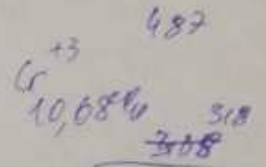 487
Cr+3
10,68%
318